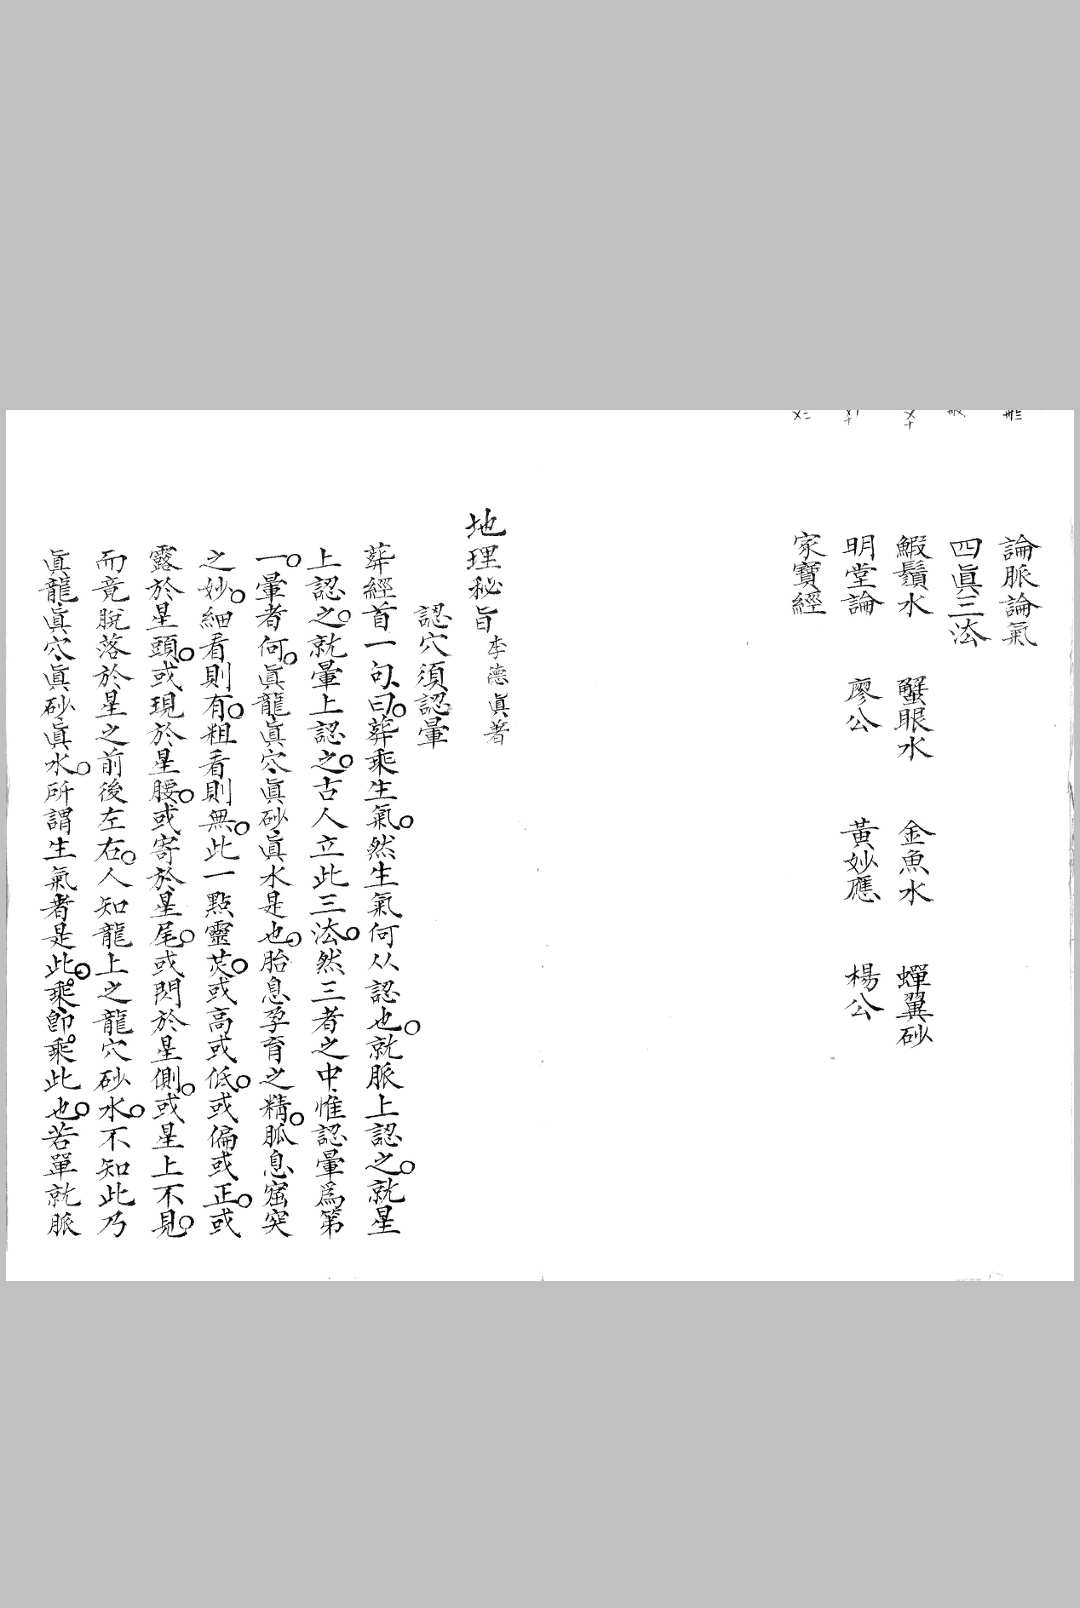 論脈論氣
四眞三法
鰕鬚水 蟹眼水 金魚水 蟬翼砂
明堂論 廖公 黃妙應 楊公
家寶經
地理秘旨 李德眞著
認穴須認暈
葬經首一句曰。葬乘生氣。然生氣何以認也。就脈上認之。就星
上認之。就暈上認之。古人立此三法。然三者之中惟認暈爲第
一。暈者何。眞龍眞穴眞砂眞水是也。胎息孕育之精。胍息窟突
之妙。細看則有。粗看則無。此一點靈荧。或高或低。或偏或正。或
露於星頭。或現於星腰。或寄於星尾。或閃於星側。或星上不見。
而竟脫落於星之前後左右。人知龍上之龍穴砂水。不知此乃
眞龍眞穴眞砂眞水。所謂生氣者是此。乘卽乘此也。若單就脈